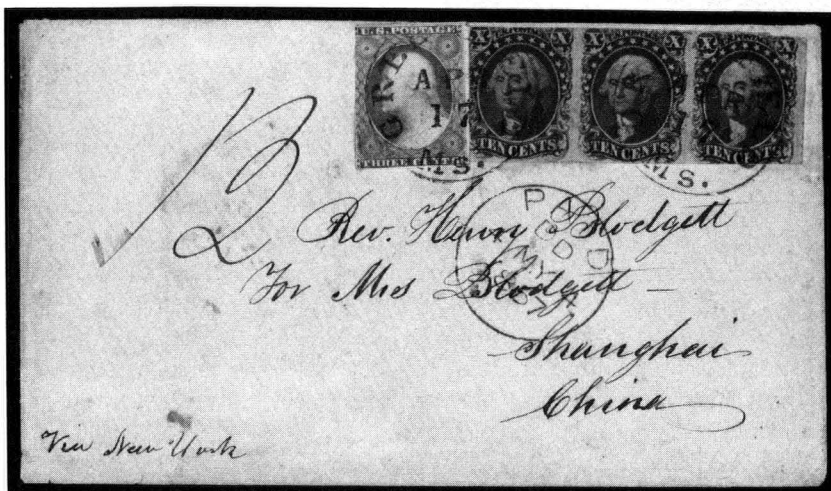 U.S. POSTAGE
THREE CENTS
X X
TEN CENTS
X X
TEN CENTS
X X
TEN CENTS
GRE
A
17
MS.
MS.
12
PAID
Rev. Henry Blodgett
For Mrs Blodgett
Shanghai
China
Via New York